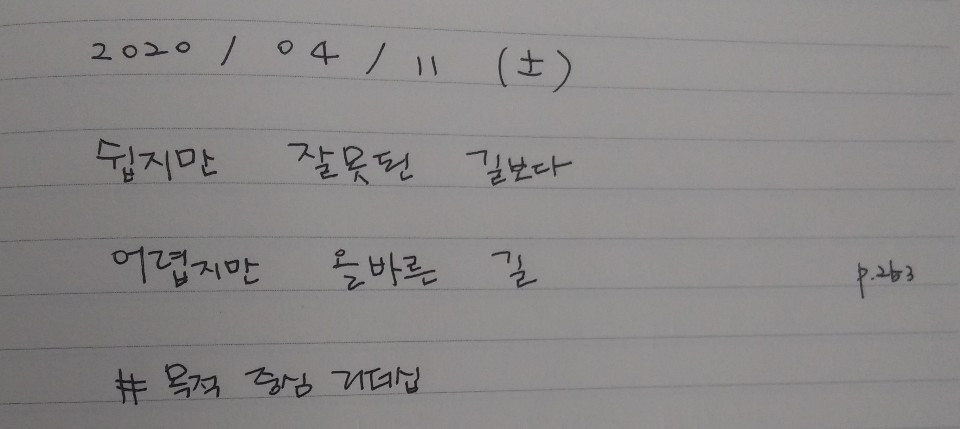 2020 / 04 / 11 (土)
쉽지만 잘못된 길보다
어렵지만 올바른 길
p.263
# 목적 중심 리더십